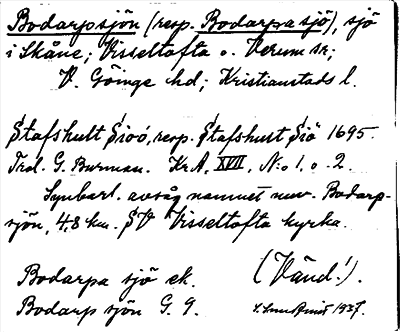 Bodarpsjön (resp. Bodarpa sjö), sjö
i Skåne; Visseltofta o. Verum sn;
V. Göinge hd; Kristianstads l.
Stafshult Siöö, resp. Stafshust Siö 1695.
Trol. G. Burman. Kr.A, XVII, N:o 1. o. 2.
Synbarl. avsåg namnet nuv. Bodarp-
sjön, 4,8 km. SV Visseltofta kyrka.
Bodarpa sjö ek. (Vänd!).
Bodarp sjön G. 9. 1937.